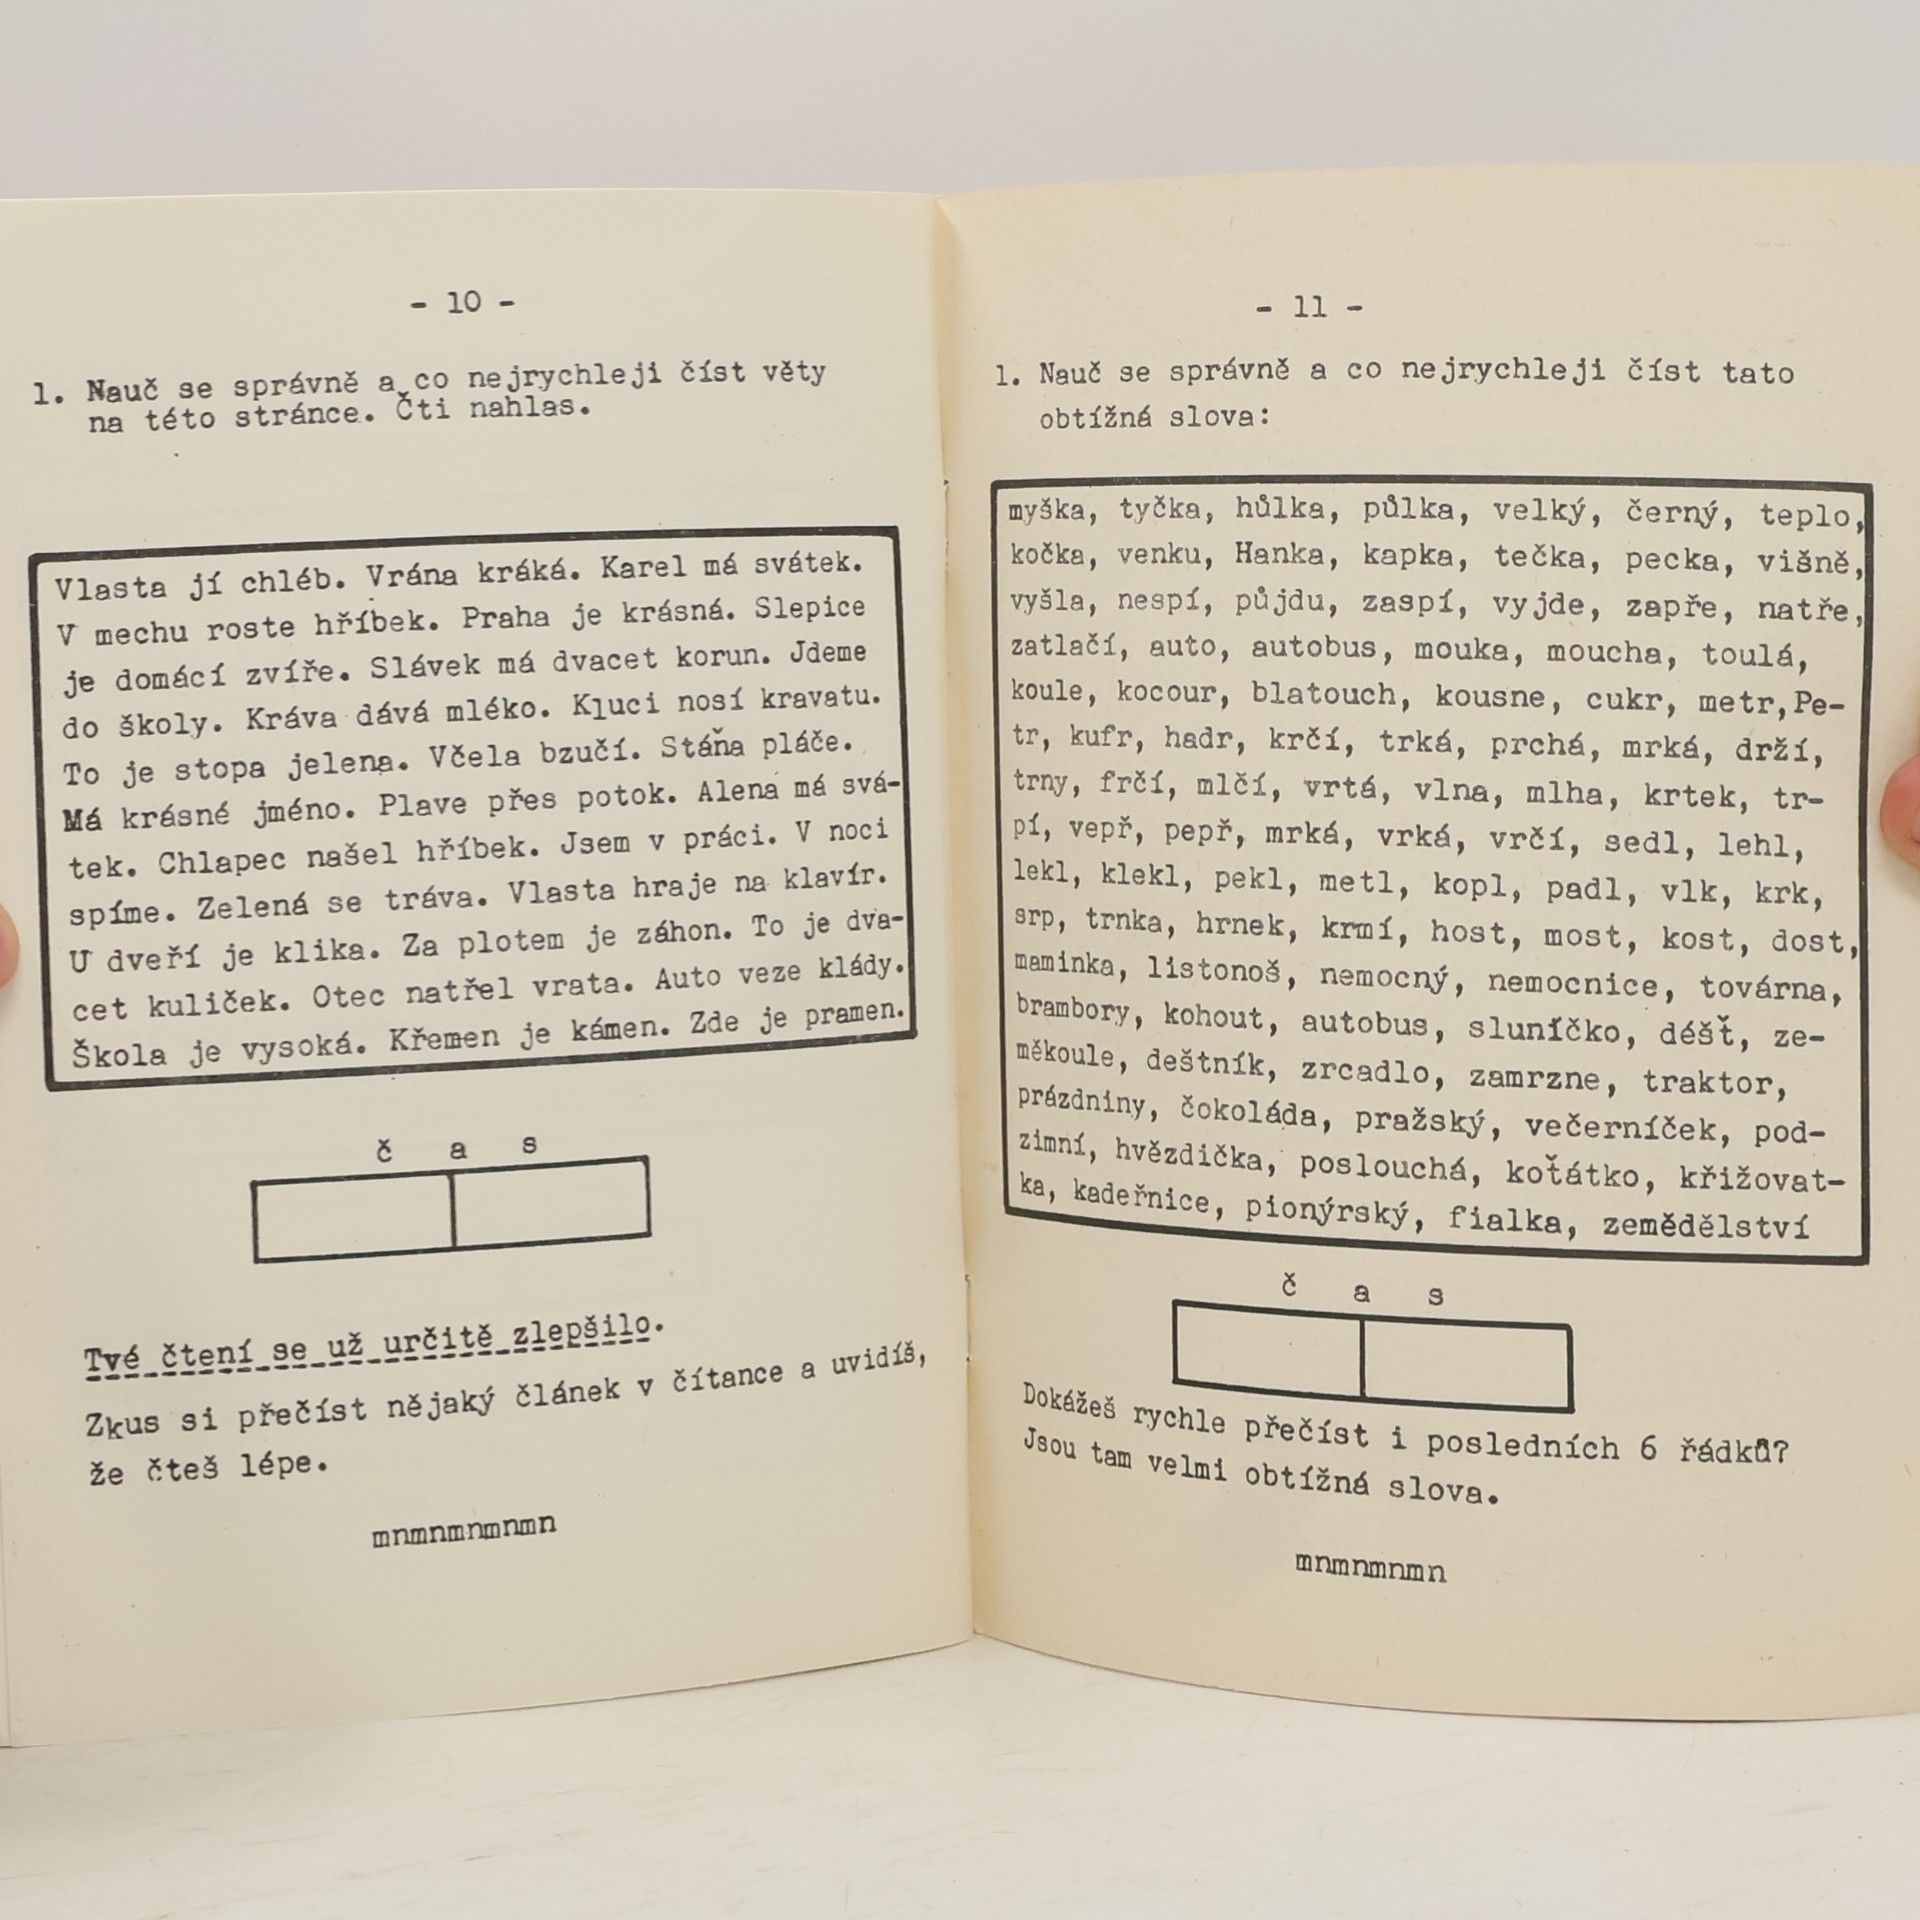 - 10 -
1. Nauč se správně a co nejrychleji číst věty
na této stránce. Čti nahlas.
Vlasta jí chléb. Vrána kráká. Karel má svátek.
V mechu roste hříbek. Praha je krásná. Slepice
je domácí zvíře. Slávek má dvacet korun. Jdeme
do školy. Kráva dává mléko. Kluci nosí kravatu.
To je stopa jelena. Včela bzučí. Stáňa pláče.
Má krásné jméno. Plave přes potok. Alena má svá-
tek. Chlapec našel hříbek. Jsem v práci. V noci
spíme. Zelená se tráva. Vlasta hraje na klavír.
U dveří je klika. Za plotem je záhon. To je dva-
cet kuliček. Otec natřel vrata. Auto veze klády.
Škola je vysoká. Křemen je kámen. Zde je pramen.
č a s
Tvé čtení se už určitě zlepšilo.
Zkus si přečíst nějaký článek v čítance a uvidíš,
že čteš lépe.
mnmnmnmnmn
- 11 -
1. Nauč se správně a co nejrychleji číst tato
obtížná slova:
myška, tyčka, hůlka, půlka, velký, černý, teplo,
kočka, venku, Hanka, kapka, tečka, pecka, višně,
vyšla, nespí, půjdu, zaspí, vyjde, zapře, natře,
zatlačí, auto, autobus, mouka, moucha, toulá,
koule, kocour, blatouch, kousne, cukr, metr,Pe-
tr, kufr, hadr, krčí, trká, prchá, mrká, drží,
trny, frčí, mlčí, vrtá, vlna, mlha, krtek, tr-
pí, vepř, pepř, mrká, vrká, vrčí, sedl, lehl,
lekl, klekl, pekl, metl, kopl, padl, vlk, krk,
srp, trnka, hrnek, krmí, host, most, kost, dost,
maminka, listonoš, nemocný, nemocnice, továrna,
brambory, kohout, autobus, sluníčko, déšť, ze-
měkoule, deštník, zrcadlo, zamrzne, traktor,
prázdniny, čokoláda, pražský, večerníček, pod-
zimní, hvězdička, poslouchá, koťátko, křižovat-
ka, kadeřnice, pionýrský, fialka, zemědělství
č a s
Dokážeš rychle přečíst i posledních 6 řádků?
Jsou tam velmi obtížná slova.
mnmnmnmn